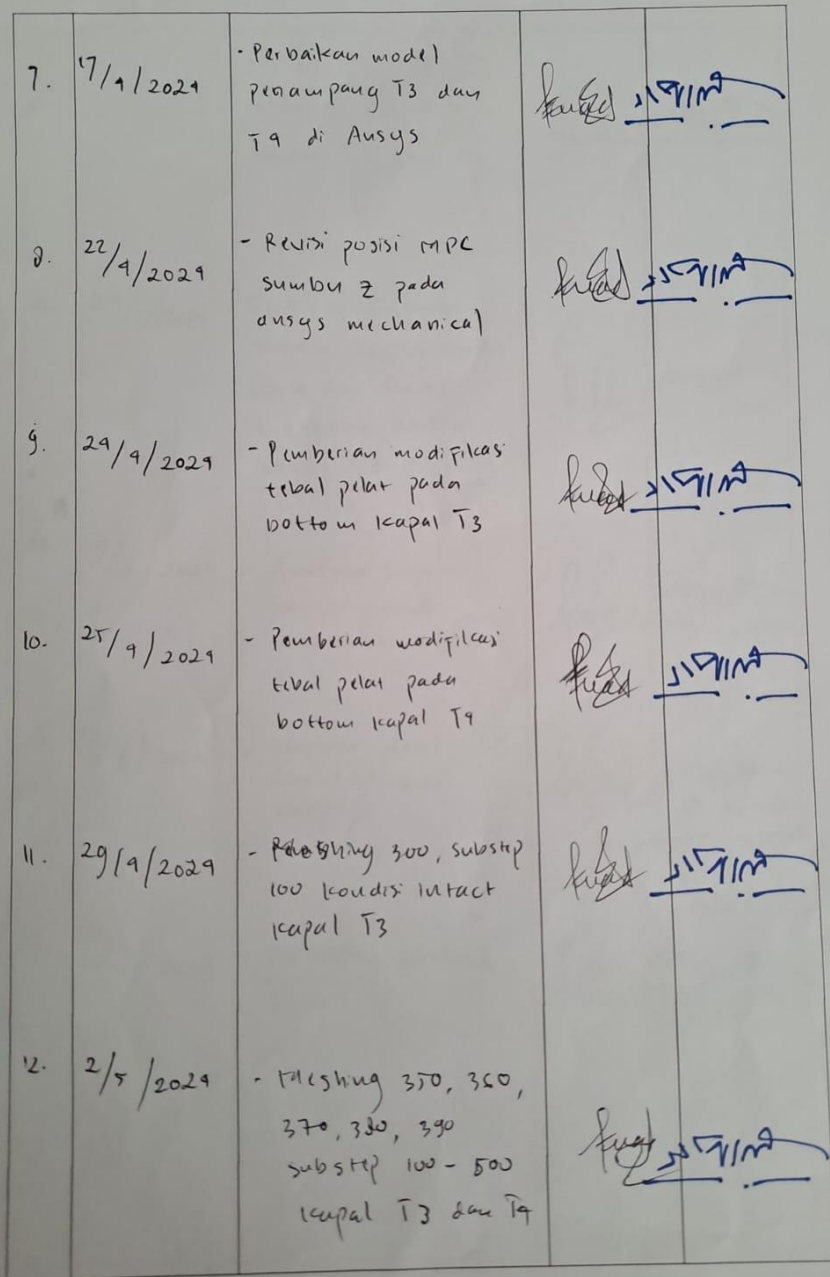 7. 17/4/2024 - Perbaikan model
penampang T3 dan
T4 di Ansys
8. 22/4/2024 - Revisi posisi MPC
sumbu z pada
ansys mechanical
9. 24/4/2024 - Pemberian modifikasi
tebal pelat pada
bottom kapal T3
10. 25/4/2024 - Pemberian modifikasi
tebal pelat pada
bottom kapal T4
11. 29/4/2024 - Meshing 300, substep
100 kondisi intact
kapal T3
12. 2/5/2024 - Meshing 350, 360,
370, 380, 390
substep 100 - 500
kapal T3 dan T4